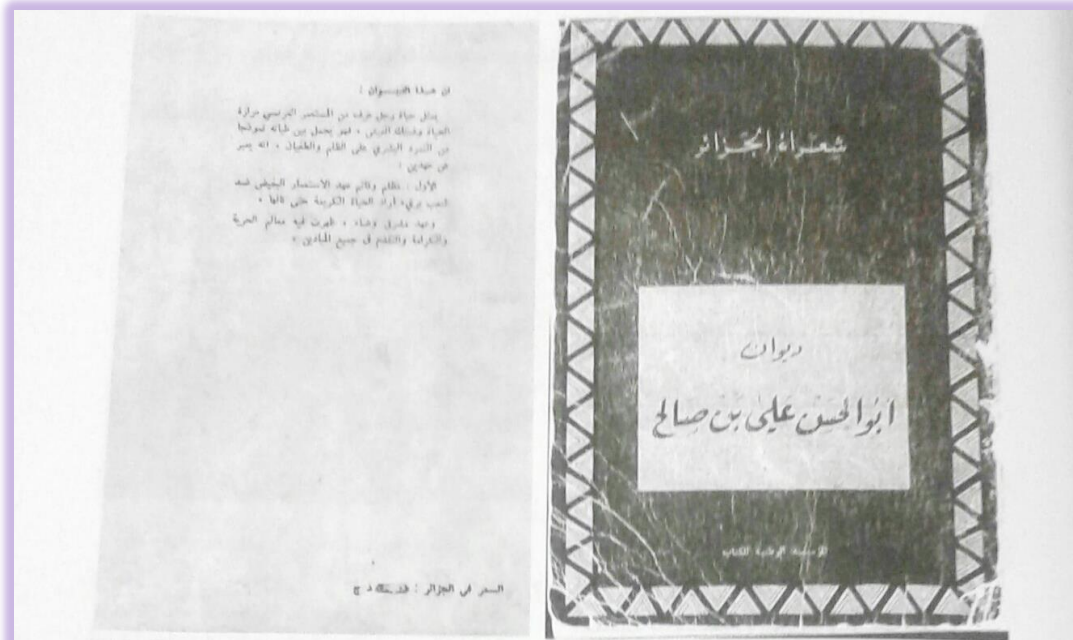 شعراء الجزائر
ديوان
أبو الحسن علي بن صالح
المؤسسة الوطنية للكتاب
ان هذا الديوان :
يمثل حياة رجل عرف من المستعمر الفرنسي مرارة
الحياة وضنك ، فهو يحمل بين طياته نموذجا
من التمرد البشري على الظلم والطغيان ، انه يعبر
عن عهدين :
الأول : ظلام وقاتم عهد الاستعمار البغيض ضد
شعب بريء أراد الحياة الكريمة حتى نالها .
وعهد مشرق وضاء ، ظهرت فيه معالم الحرية
والكرامة والتقدم في جميع الميادين .
السعر في الجزائر : دج